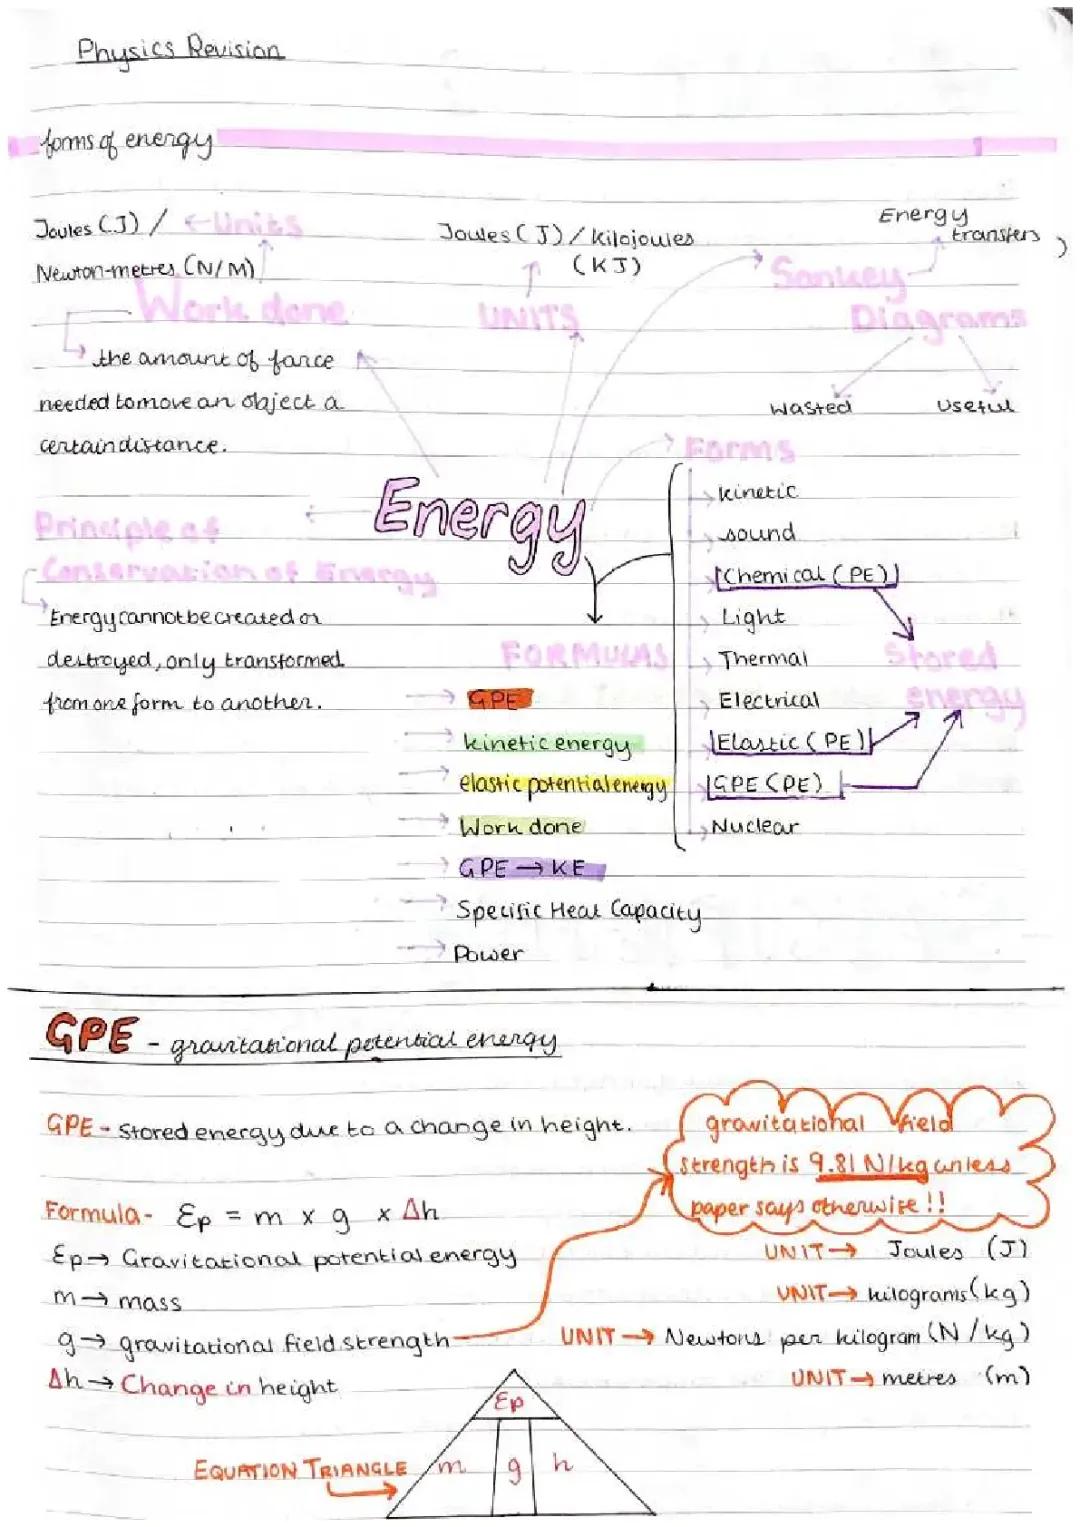 Physics Revision
forms of energy
Joules (J) / ← Units
Newton-metres (N/M)
Work done
the amount of force
needed to move an object a
certain distance.
Joules (J) / kilojoules
(KJ)
UNITS
Energy
transfers
Sankey
Diagrams
Wasted
Useful
Energy
Principle of
Conservation of Energy
Energy cannot be created or
destroyed, only transformed
from one form to another.
Forms
kinetic
sound
[Chemical (PE)]
Light
Thermal
Electrical
[Elastic (PE)]
[GPE (PE)]
Nuclear
Stored
energy
FORMULAS
→ GPE
→ kinetic energy
→ elastic potential energy
→ Work done
→ GPE → KE
→ Specific Heat Capacity
→ Power
GPE - gravitational potential energy
GPE - Stored energy due to a change in height.
gravitational field
strength is 9.81 N/kg unless
paper says otherwise !!
Formula - Ep = m x g x Δh
Ep → Gravitational potential energy UNIT → Joules (J)
m → mass UNIT → kilograms (kg)
g → gravitational field strength UNIT → Newtons per kilogram (N/kg)
Δh → Change in height UNIT → metres (m)
EQUATION TRIANGLE
Ep
m g h